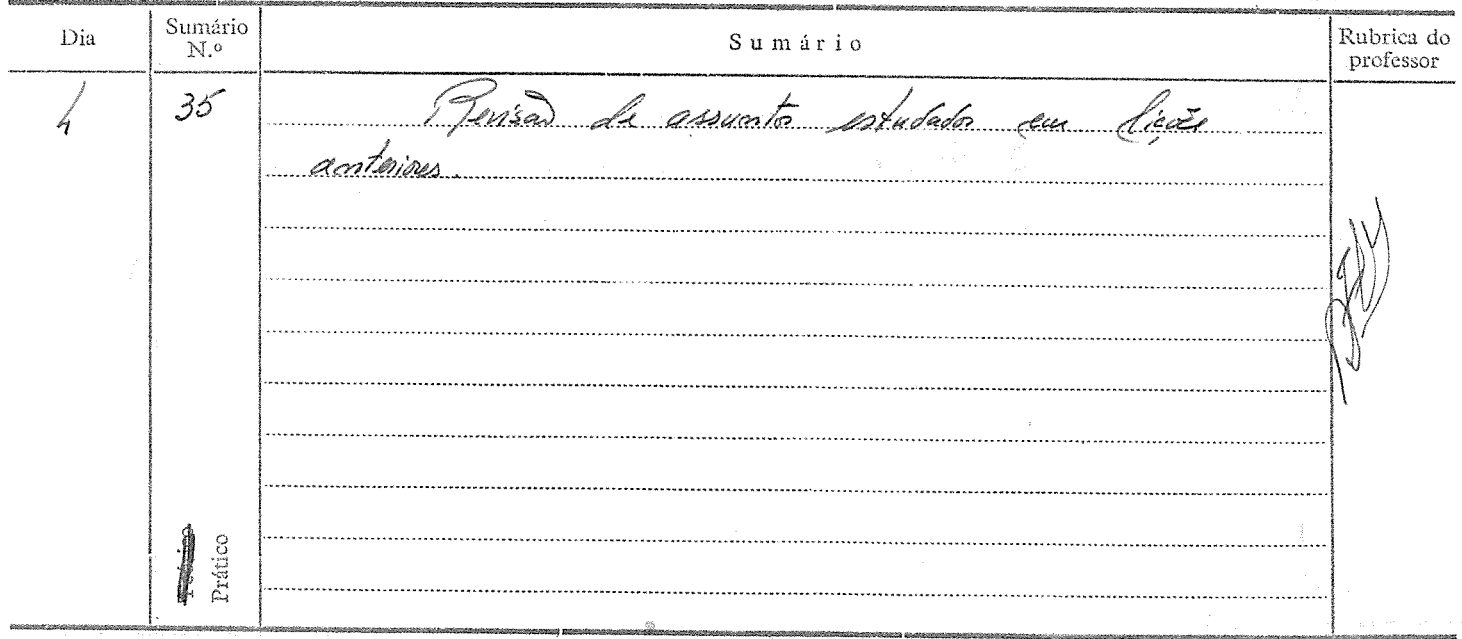 Dia
Sumário
N.º
Sumário
Rubrica do
professor
4
35
Revisão de assuntos estudados em lições
anteriores.
Prático